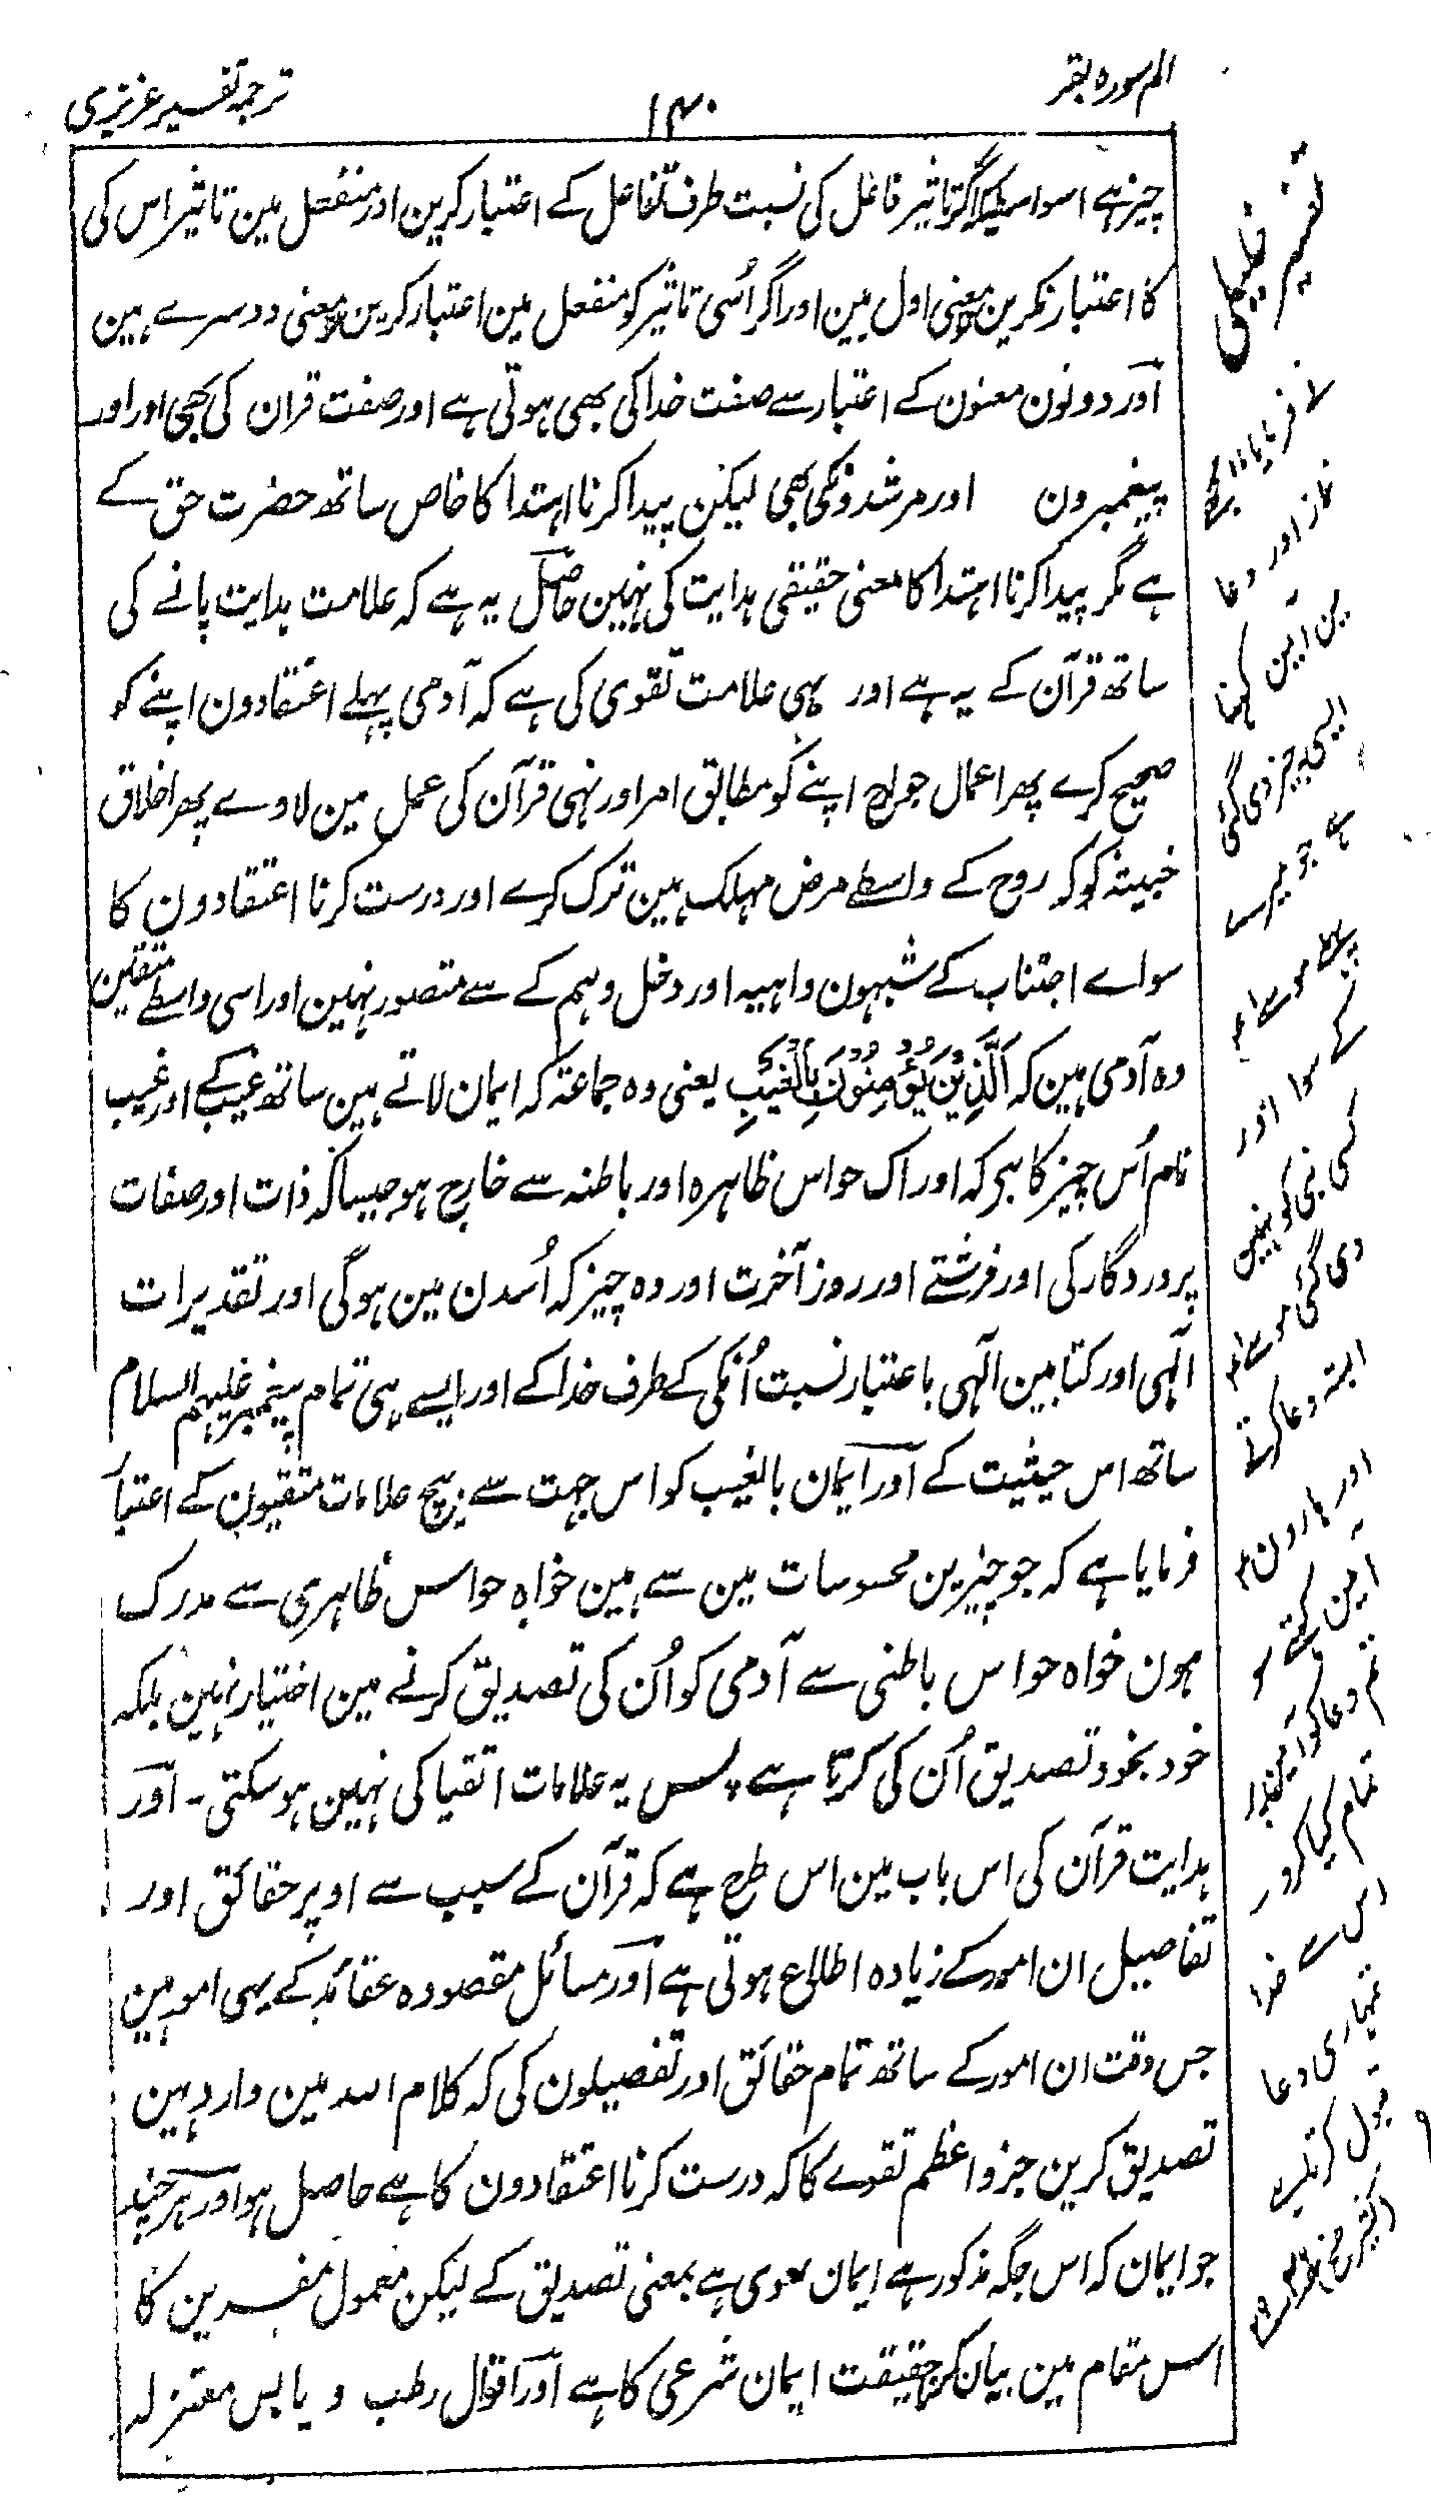 الم سوره بقر
۱۴۰
ترجمہ تفسیر عزیزی
چیز ہے اسواسطیکہ اگر تاثیر فاعل کی نسبت طرف تفاعل کے اعتبار کرین اور منفعل مین تاثیر اس کی
کا اعتبار نکرین تو معنی اول ہین اور اگر اُسی تاثیر کو منفعل مین اعتبار کرین تو معنی دوسرے ہین
اور دونون معنون کے اعتبار سے صفت خدا کی بھی ہوتی ہے اور صفت قران کی بھی اور اور
پیغمبرون اور مرشدونکی بھی لیکن پیدا کرنا اہتدا کا خاص ساتھ حضرت حق کے
ہے مگر پیدا کرنا اہتدا کا معنی حقیقی ہدایت کی نہین حاصل یہ ہے کہ علامت ہدایت پانے کی
ساتھ قرآن کے یہ ہے اور یہی علامت تقوی کی ہے کہ آدمی پہلے اعتقادون اپنے کو
صحیح کرے پھر اعمال جوارح اپنے کو مطابق امر اور نہی قرآن کی عمل مین لاوے پھر اخلاق
خبیثہ کو کہ روح کے واسطے مرض مہلک ہین ترک کرے اور درست کرنا اعتقادون کا
سواے اجتناب کے شبہون واہیہ اور دخل وہم کے سے متصور نہین اور اسی واسطے متقین
وہ آدمی ہین کہ اَلَّذِیْنَ یُؤْمِنُوْنَ بِالْغَیْبِ یعنی وہ جماعۃ کہ ایمان لاتے ہین ساتھ غیب کے اور غیب
نام اُس چیز کا ہی کہ ادراک حواس ظاہرہ اور باطنہ سے خارج ہو جیسا کہ ذات اور صفات
پروردگار کی اور فرشتے اور روز آخرت اور وہ چیز کہ اُسدن مین ہوگی اور تقدیرات
الٓہی اور کتابین الٓہی باعتبار نسبت اُنکی کے طرف خدا کے اور ایسے ہی تمام پیغمبر علیہم السلام
ساتھ اس حیثیت کے اور ایمان بالغیب کو اس جہت سے بیچ علامات متقیون کے اعتبار
فرمایا ہے کہ جو چیزین محسوسات مین سے ہین خواہ حواس ظاہری سے مدرک
ہون خواہ حواس باطنی سے آدمی کو اُن کی تصدیق کرنے مین اختیار نہین بلکہ
خود بخود تصدیق اُن کی کرتا ہے پس یہ علامات اتقیا کی نہین ہوسکتی۔ اور
ہدایت قرآن کی اس باب مین اس طرح ہے کہ قرآن کے سبب سے اوپر حقائق اور
تفاصیل ان امور کے زیادہ اطلاع ہوتی ہے اور مسائل مقصودہ عقائد کے یہی امور ہین
جس وقت ان امور کے ساتھ تمام حقائق اور تفصیلون کی کہ کلام اللہ مین وارد ہین
تصدیق کرین جزو اعظم تقوے کا کہ درست کرنا اعتقادون کا ہے حاصل ہو اور ہرچند
جو ایمان کہ اس جگہ مذکور ہے ایمان لغوی ہے بمعنی تصدیق کے لیکن معمول مفسرین کا
اس مقام مین بیان کرنا حقیقت ایمان شرعی کا ہے اور اقوال رطب و یابس معتزلہ
نماز اور دعا
مین آمین کہنا
ایسی چیز دی گئی
ہے جو میرے
پہلے موسےٰؑ
کے سوا اور
کسی نبی کو نہین
دی گئی موسےٰؑ
البتہ دعا کرتے
اور ہارونؑ
آمین کہتے سو
تمام کیا کرو
اس سے خدا
تمہاری دعا
قبول کرتا ہے